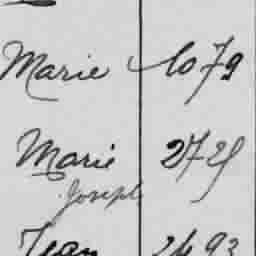 Marie 1079
Marie 2725
Joseph
Jean 2493